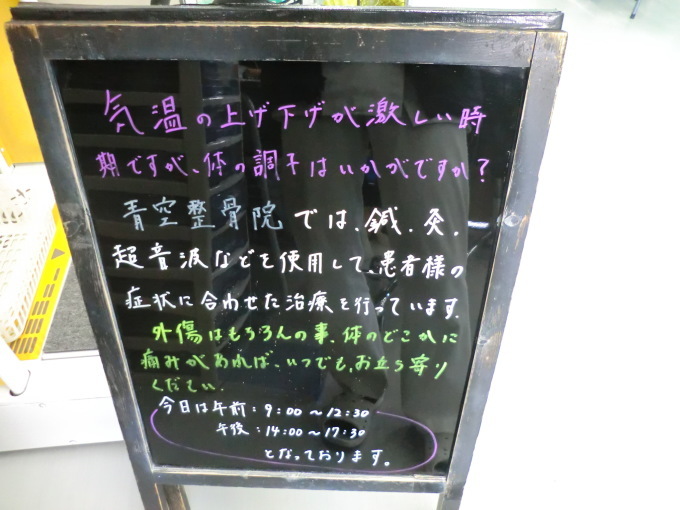 気温の上げ下げが激しい時
期ですが、体の調子はいかがですか?
青空整骨院では、鍼、灸、
超音波などを使用して、患者様の
症状に合わせた治療を行っています。
外傷はもちろんの事、体のどこかに
痛みがあれば、いつでも、お立ち寄り
ください。
今日は午前:9:00〜12:30
午後:14:00〜17:30
となっております。